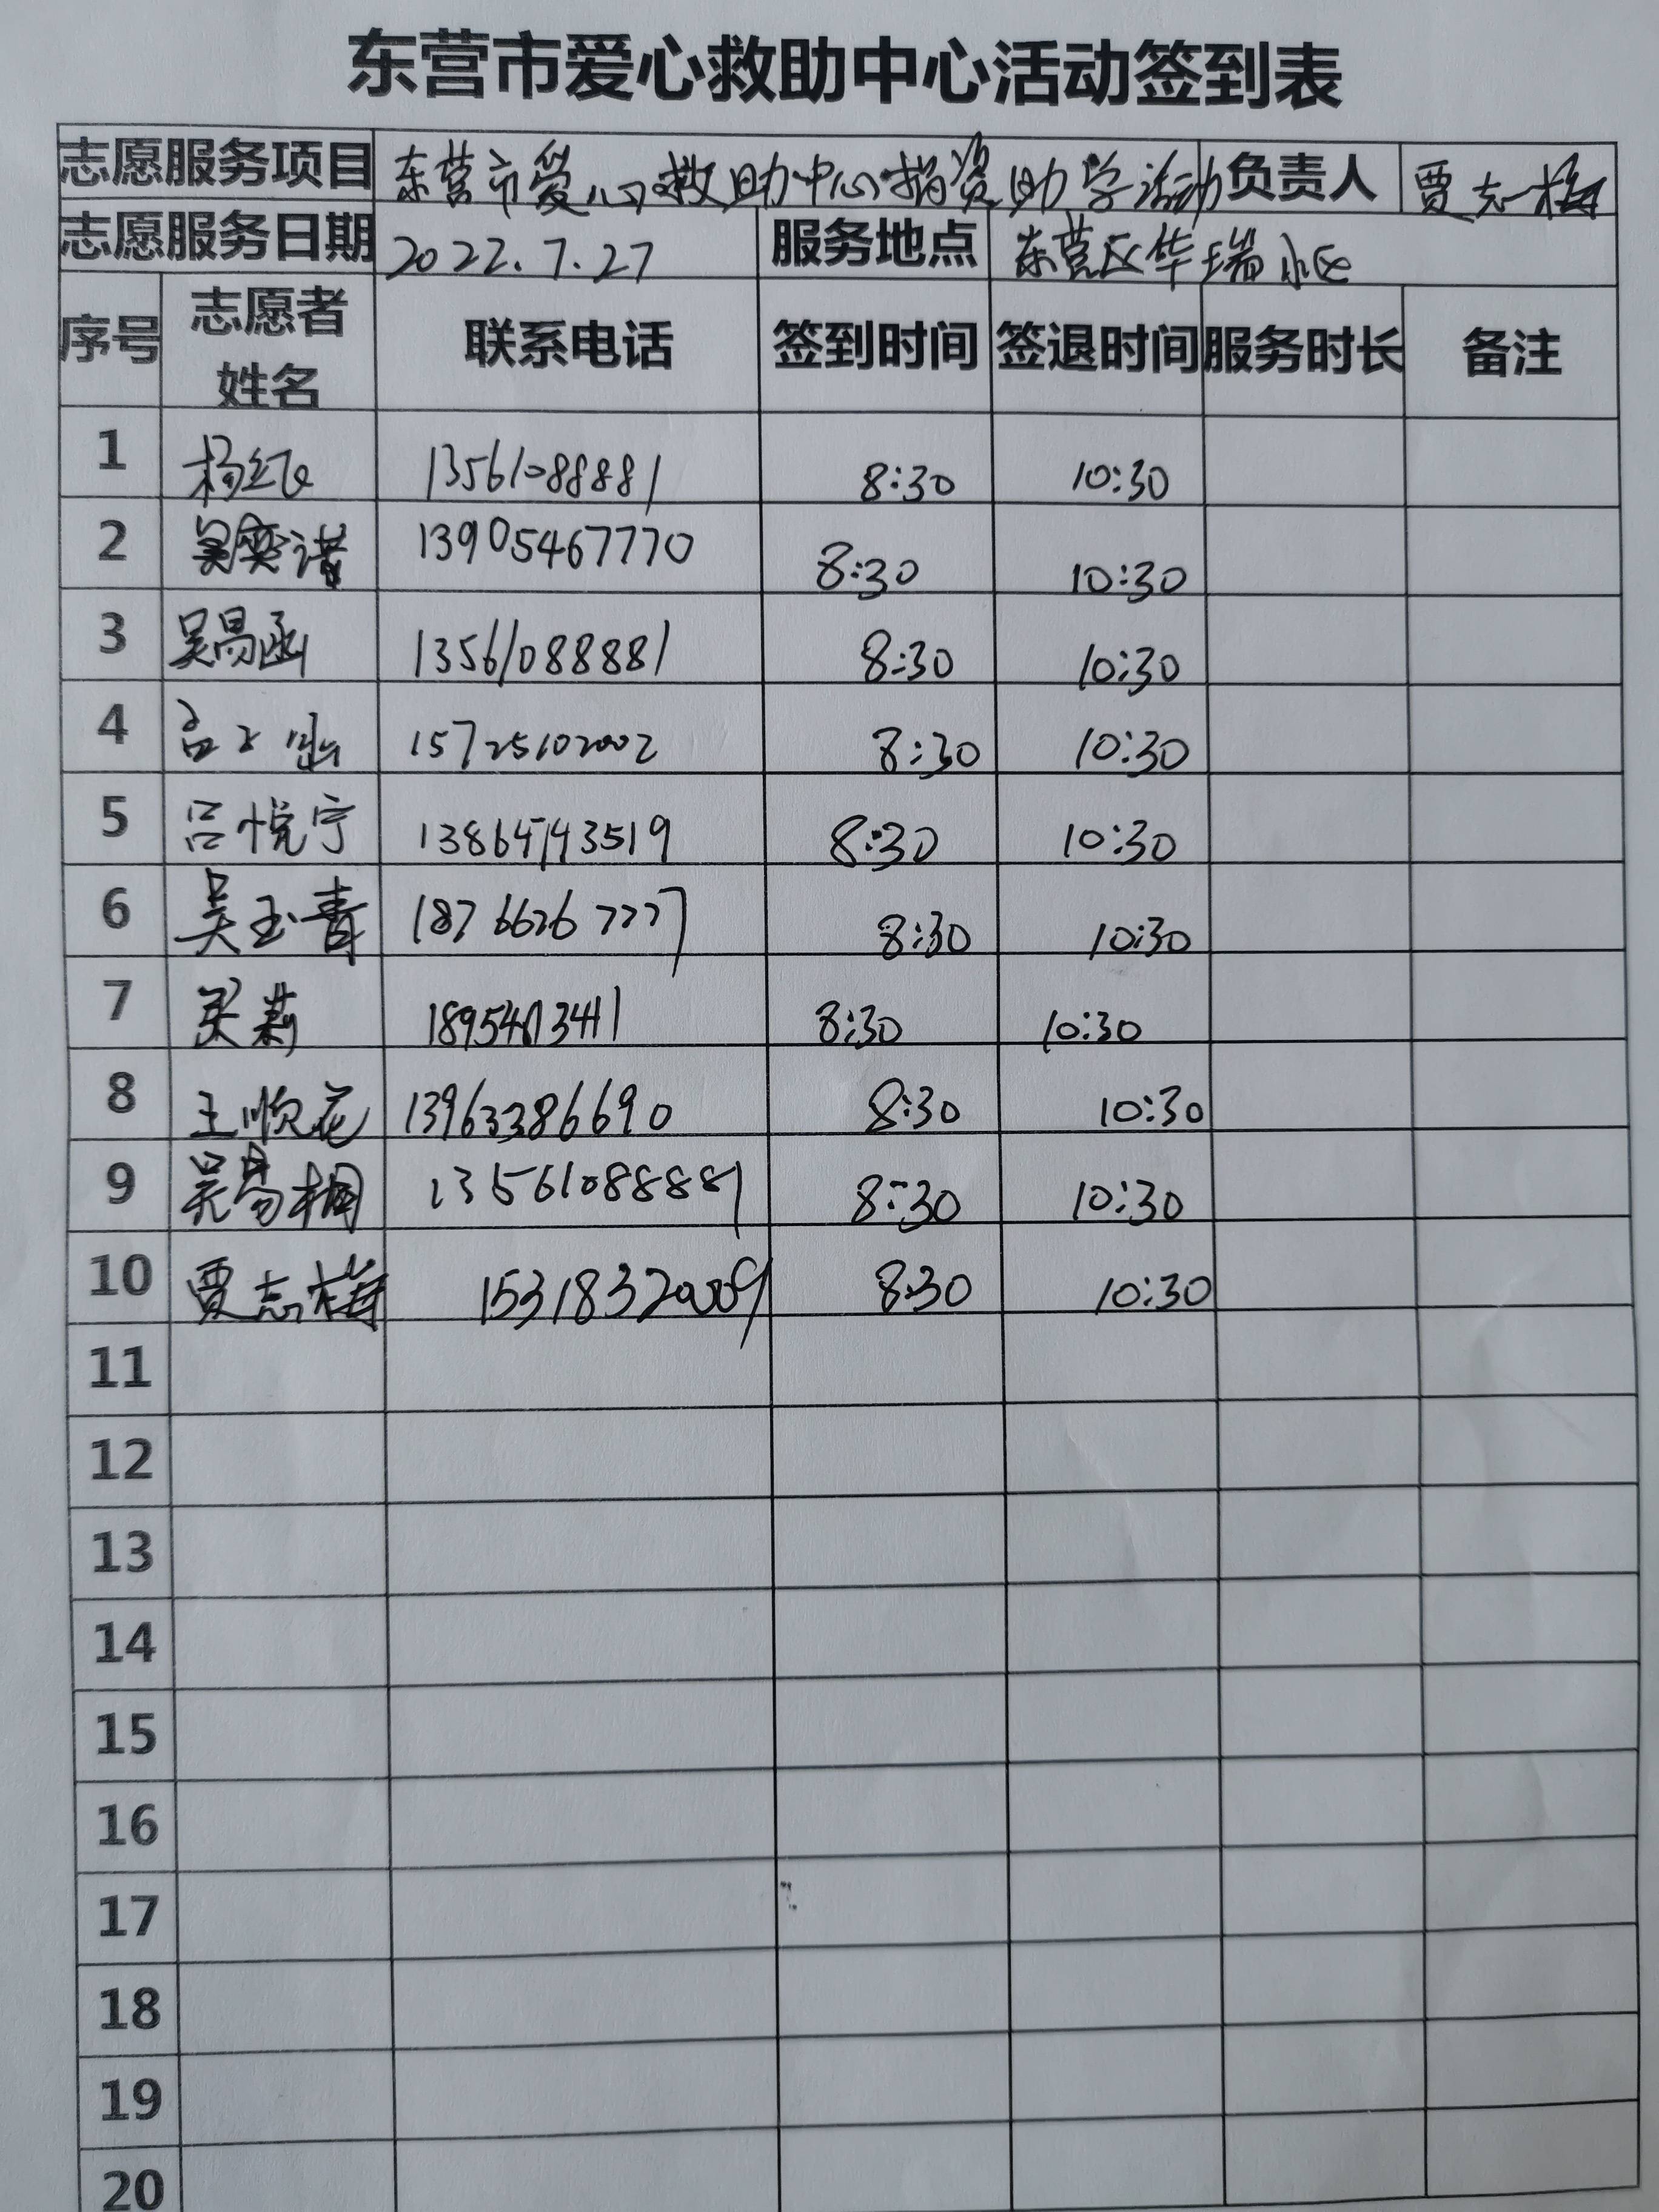 东营市爱心救助中心活动签到表
志愿服务项目 东营市爱心救助中心捐资助学活动 负责人 贾志梅
志愿服务日期 2022.7.27 服务地点 东营区华瑞小区
序号 志愿者姓名 联系电话 签到时间 签退时间 服务时长 备注
1 杨红 13561088881 8:30 10:30
2 吴奕诺 13905467770 8:30 10:30
3 吴昜函 13561088881 8:30 10:30
4 15725102002 8:30 10:30
5 吕悦宁 13864743519 8:30 10:30
6 吴玉青 18766267777 8:30 10:30
7 8:30 10:30
8 王顺花 13963386690 8:30 10:30
9 吴易桐 13561088881 8:30 10:30
10 贾志梅 15318320009 8:30 10:30
11
12
13
14
15
16
17
18
19
20